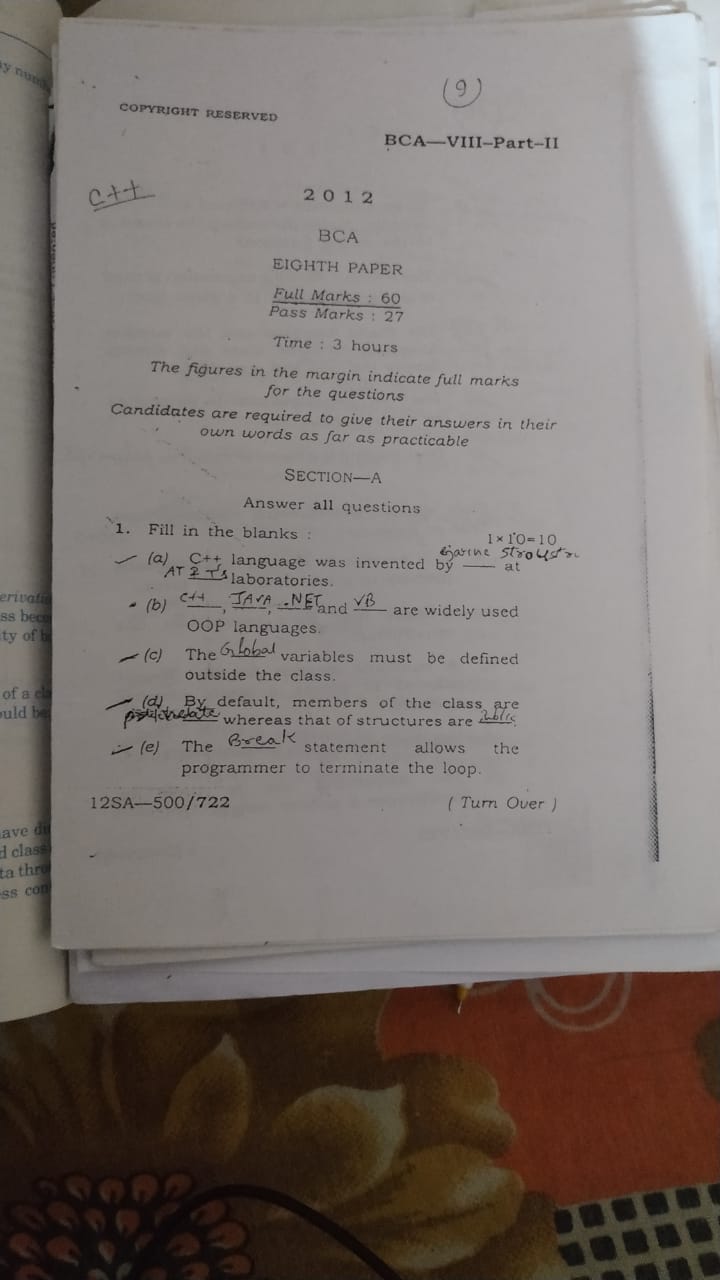 (9)
COPYRIGHT RESERVED
BCA—VIII–Part–II
C++
2012
BCA
EIGHTH PAPER
Full Marks : 60
Pass Marks : 27
Time : 3 hours
The figures in the margin indicate full marks
for the questions
Candidates are required to give their answers in their
own words as far as practicable
SECTION—A
Answer all questions
1. Fill in the blanks :
1×10=10
(a) C++ language was invented by ___ at
AT & T's laboratories.
(b) C++, JAVA, .NET and VB are widely used
OOP languages.
(c) The Global variables must be defined
outside the class.
(d) By default, members of the class are
whereas that of structures are Public.
(e) The Break statement allows the
programmer to terminate the loop.
12SA—500/722
( Turn Over )